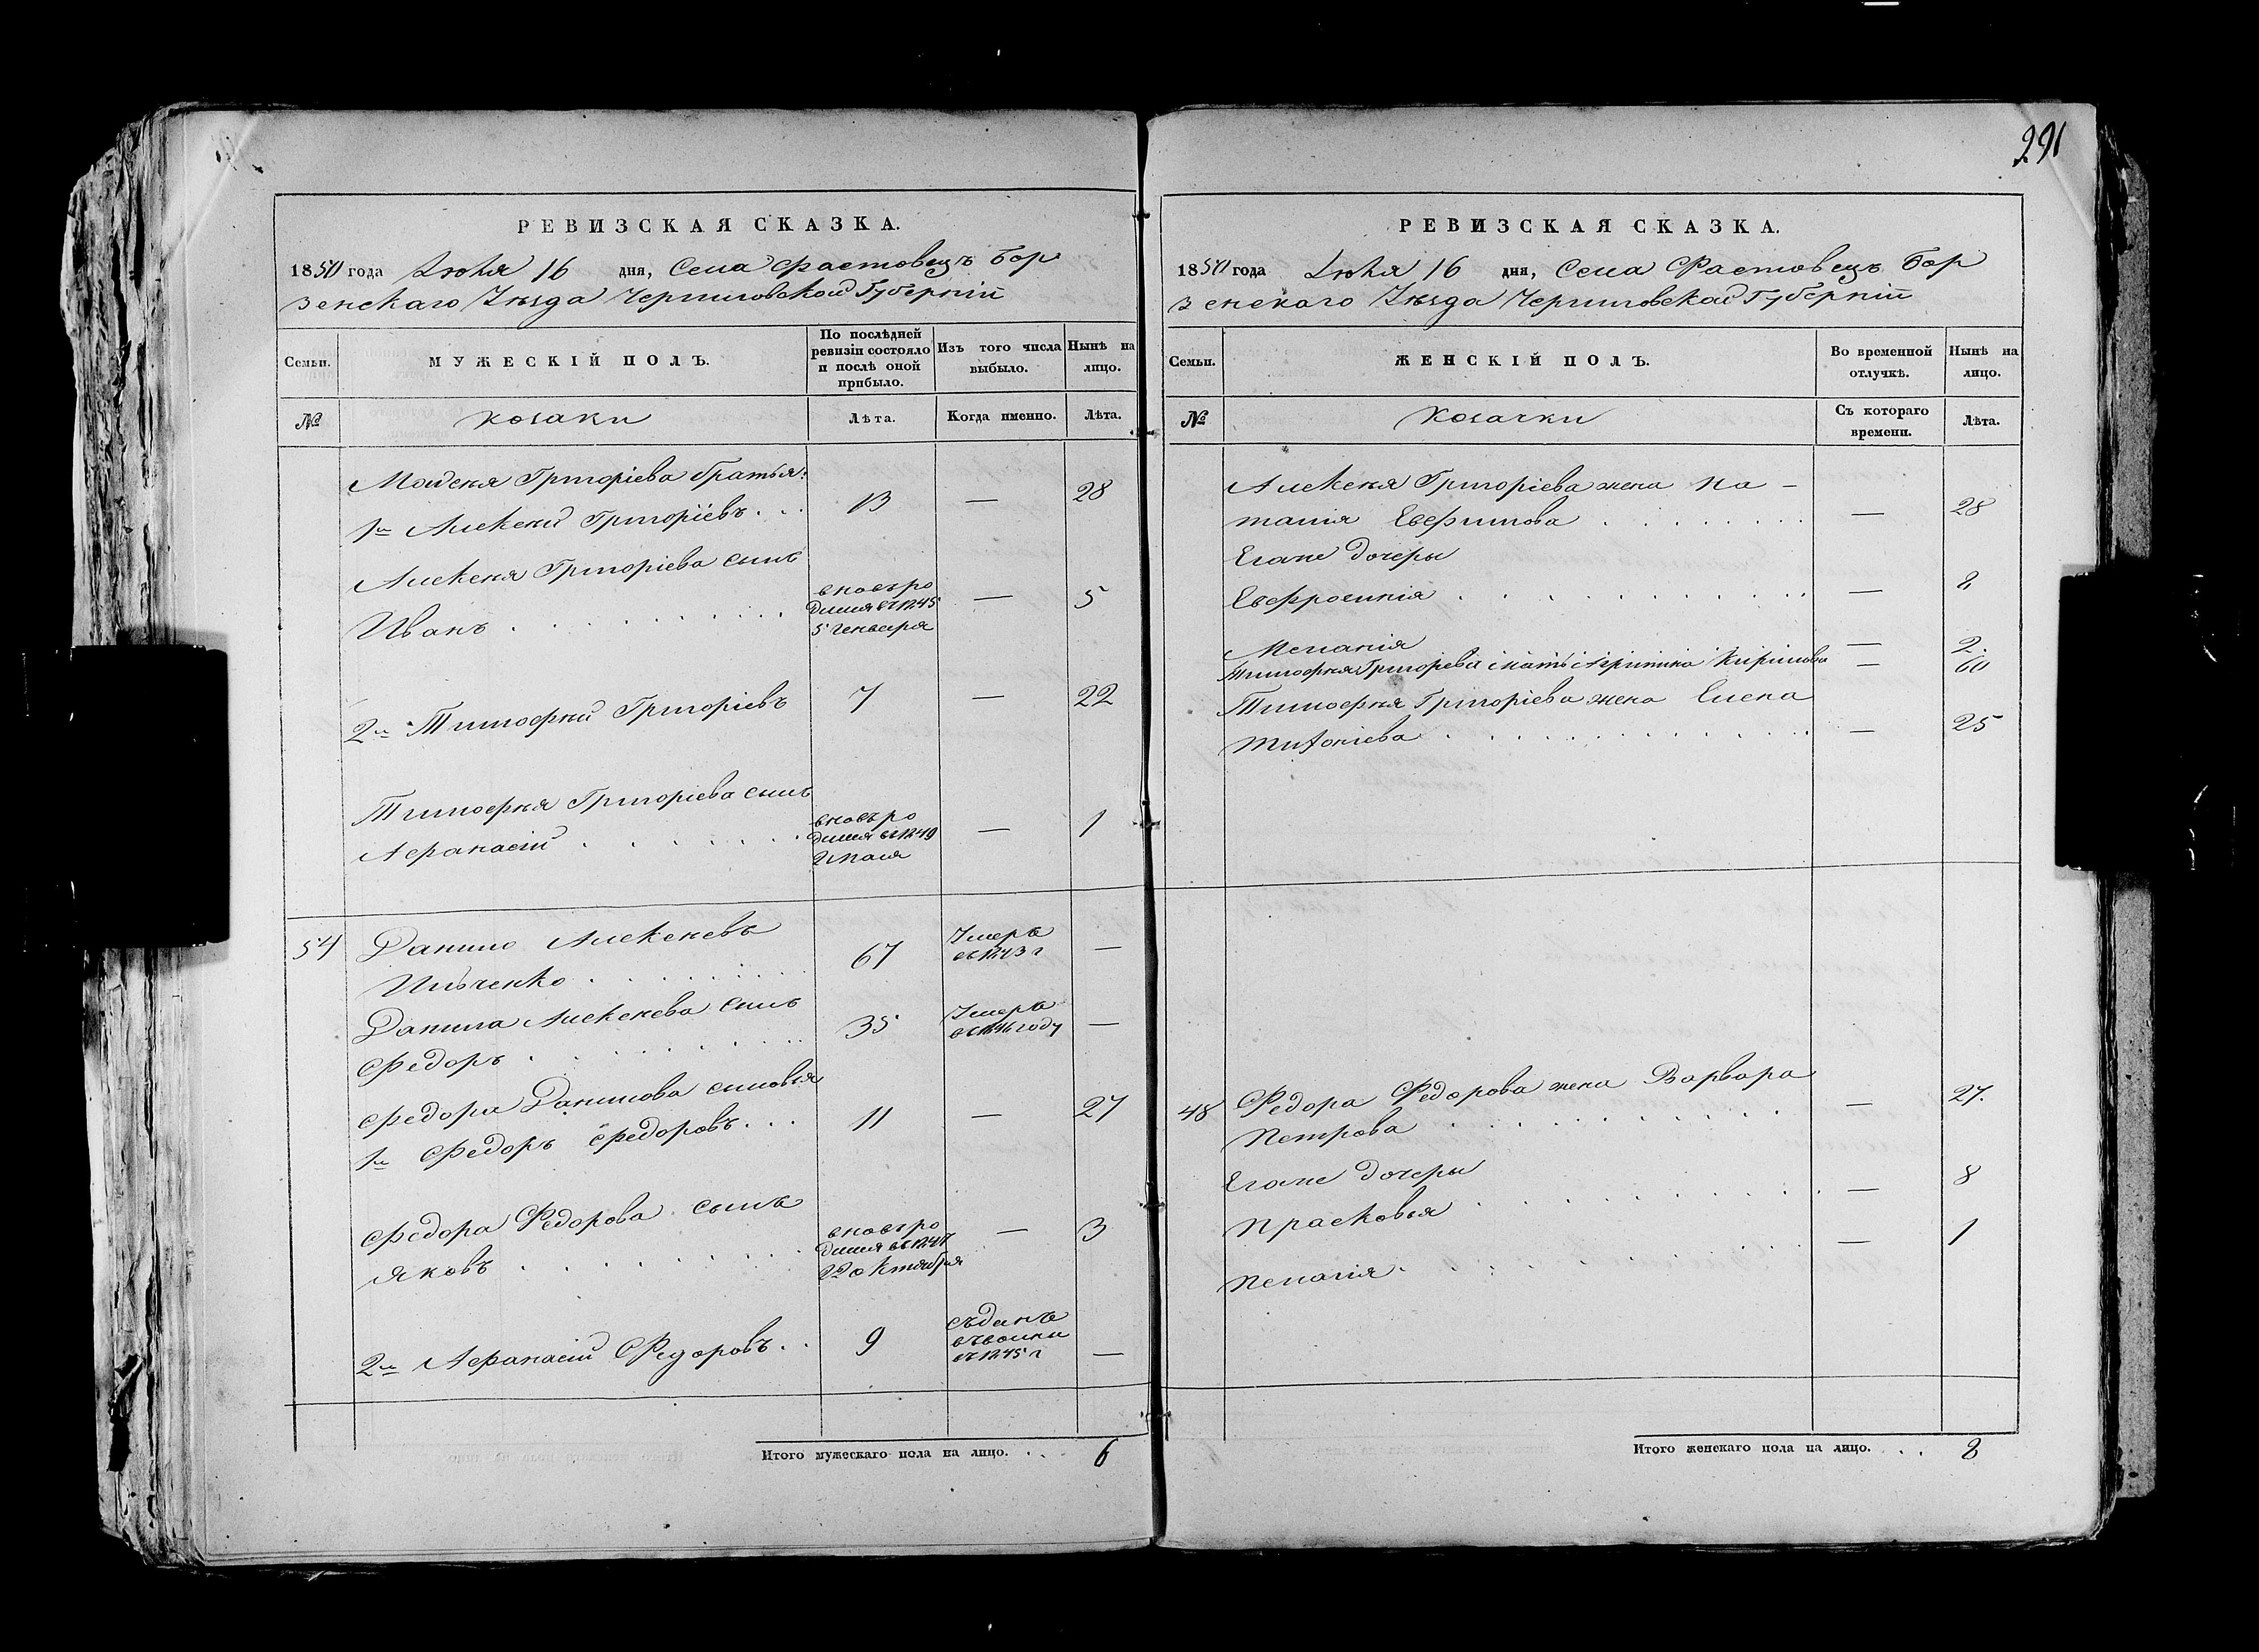 291
РЕВИЗСКАЯ СКАЗКА.
1850 года Іюля 16 дня, Села Фастовецъ Бор
зенскаго Уѣзда Черниговской Губерніи
Семьи.
МУЖЕСКІЙ ПОЛЪ.
По послѣдней ревизіи состояло и послѣ оной прибыло.
Изъ того числа выбыло.
Нынѣ на лицо.
№
козаки
Лѣта.
Когда именно.
Лѣта.
Моисея Григоріева братья:
1й Алексѣй Григоріевъ . . . 13 — 28
Алексѣя Григоріева сынъ
Иванъ . . . вновьро
дился въ 1845
5 Генваря — 5
2й Тимофѣй Григоріевъ 7 — 22
Тимофѣя Григоріева сынъ
Афанасій . . . вновьро
дился въ 1849
2 мая — 1
54 Данило Алексѣевъ
Ильченко . . . 67 Умеръ
въ 1843 г —
Данила Алексѣева сынъ
Федоръ . . . 35 Умеръ
въ 1846 году —
Федора Данилова сыновья
1й Федоръ Федоровъ . . . 11 — 27
Федора Федорова сынъ
Яковъ . . . вновьро
дился въ 1847
22 октября — 3
2й Афанасій Федоровъ . . 9 съданъ
въ воины
въ 1845 г —
Итого мужескаго пола на лицо. . . . 6
РЕВИЗСКАЯ СКАЗКА.
1850 года Іюля 16 дня, Села Фастовецъ Бор
зенскаго Уѣзда Черниговской Губерніи
Семьи.
ЖЕНСКІЙ ПОЛЪ.
Во временной отлучкѣ.
Нынѣ на лицо.
№
козачки
Съ котораго времени.
Лѣта.
Алексѣя Григоріева жена На-
талія Евфимова . . . — 28
Егоже дочеры
Евфросинія . . . — 8
Меланія — 2
Тимофѣя Григоріева мать Агрипина Кирилова — 60
Тимофѣя Григоріева жена Елена
. . . — 25
48 Федора Федорова жена Варвара
Петрова . . . — 27.
Егоже дочеры
Прасковья . . . — 8
Пелагія . . . — 1
Итого женскаго пола на лицо. . . . 8